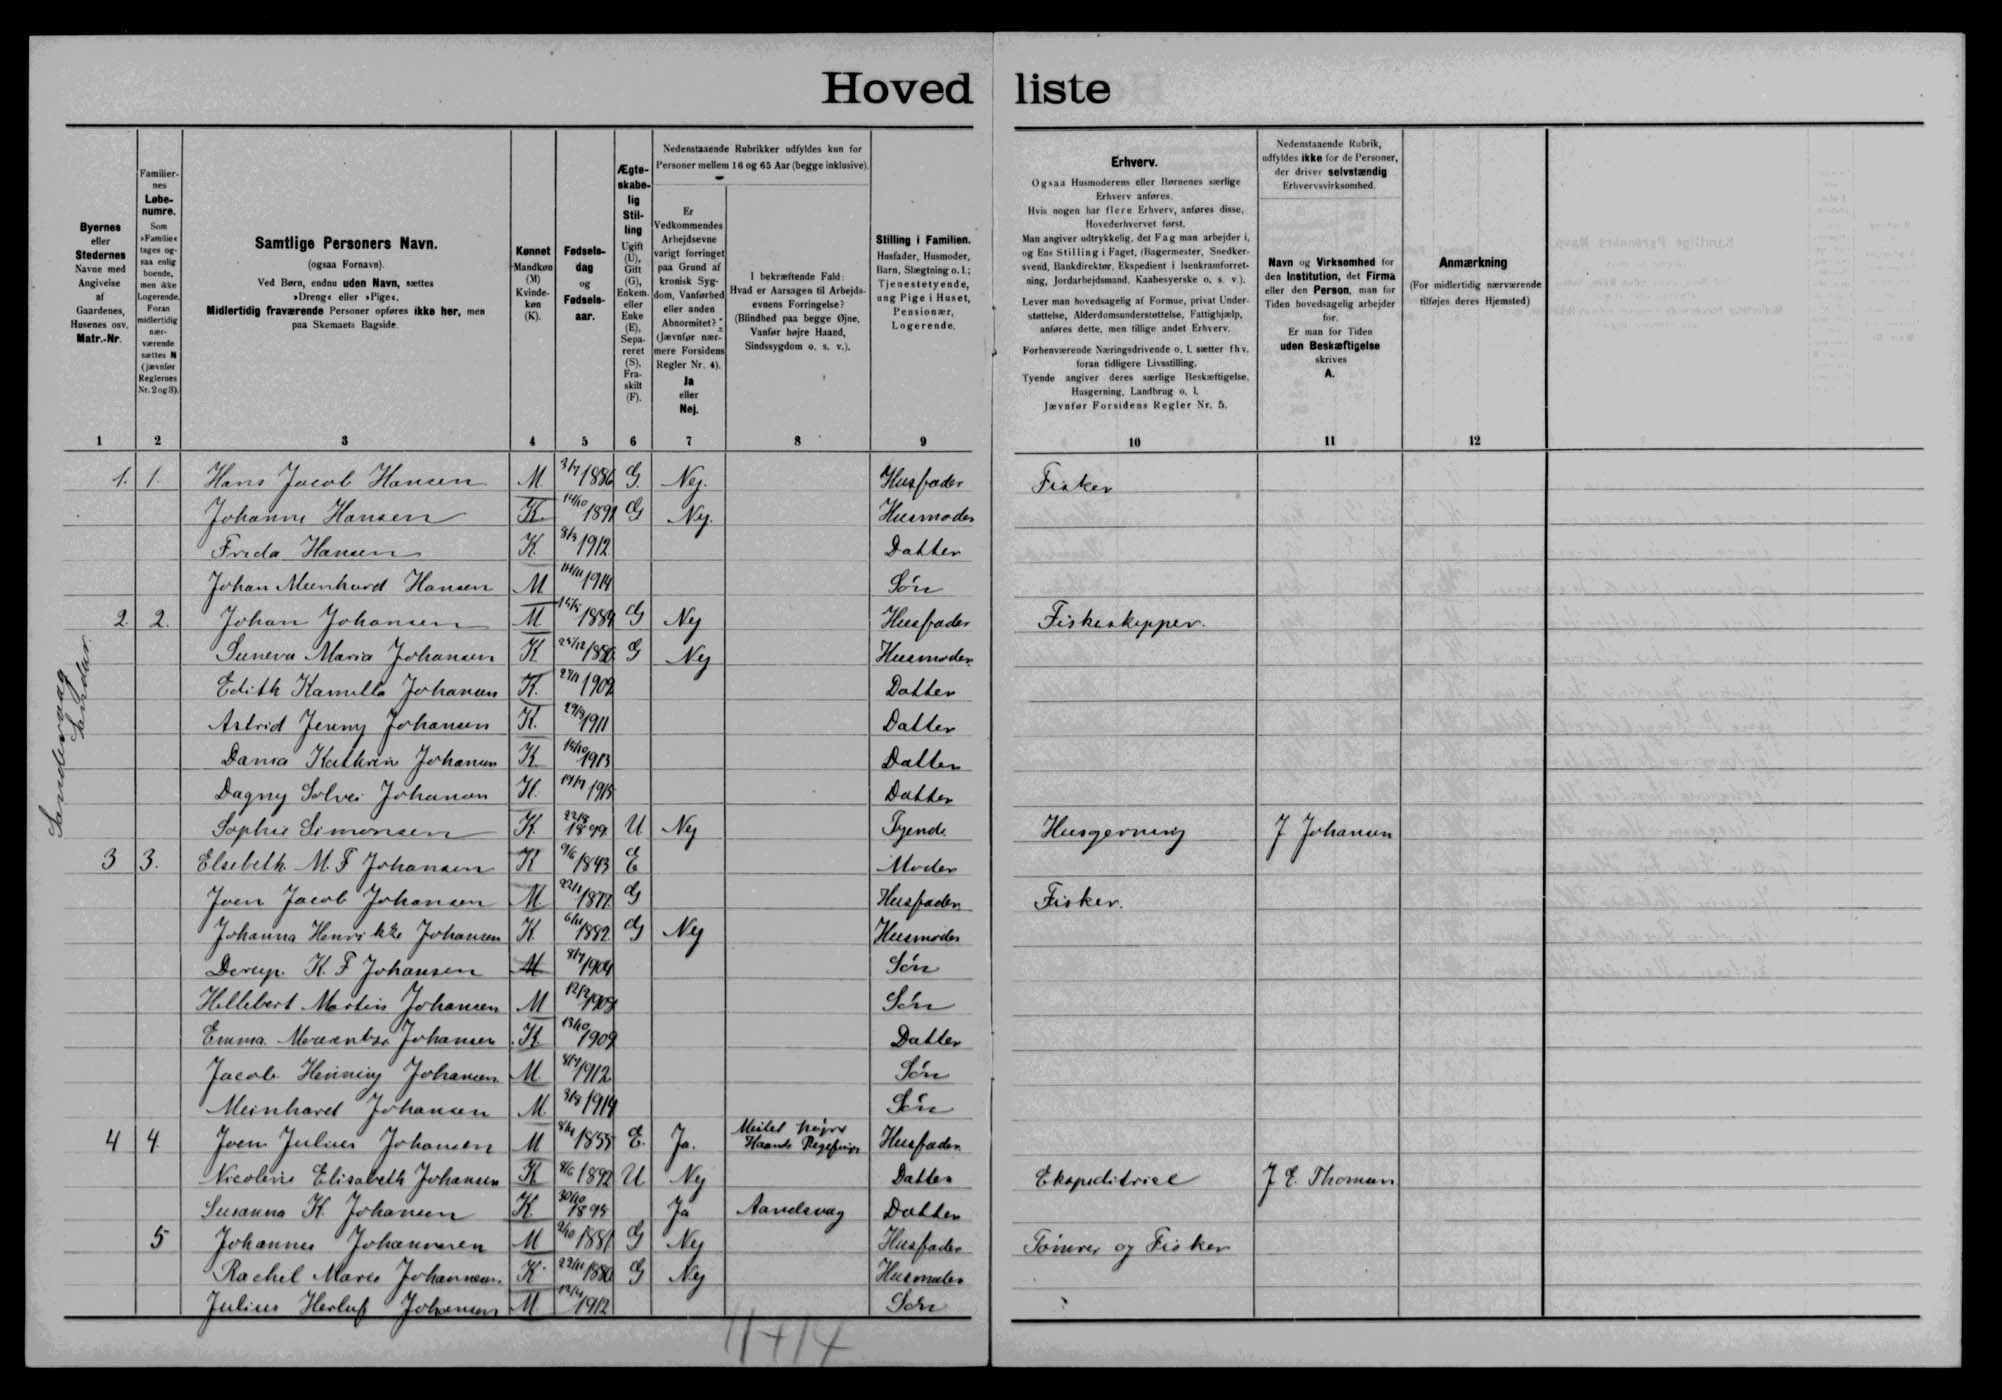 Hovedliste
Byernes
eller
Stedernes
Navne med
Angivelse
af
Gaardenes,
Husenes osv.
Matr.-Nr.
Familier-
nes
Løbe-
numre.
Som
»Familie«
tages og-
saa enlig
boende,
men ikke
Logerende.
Foran
midlertidig
nær-
værende
sættes N
(jævnfør
Reglernes
Nr. 2 og 3).
Samtlige Personers Navn.
(ogsaa Fornavn).
Ved Børn, endnu uden Navn, sættes
»Dreng« eller »Pige«.
Midlertidig fraværende Personer opføres ikke her, men
paa Skemaets Bagside.
Kønnet
Mandkøn
(M)
Kvinde-
køn
(K).
Fødsels-
dag
og
Fødsels-
aar.
Ægte-
skabe-
lig
Stil-
ling
Ugift
(U),
Gift
(G),
Enkem.
eller
Enke
(E),
Sepa-
reret
(S),
Fra-
skilt
(F).
Nedenstaaende Rubrikker udfyldes kun for
Personer mellem 16 og 65 Aar (begge inklusive).
Er
Vedkommendes
Arbejdsevne
varigt forringet
paa Grund af
kronisk Syg-
dom, Vanførhed
eller anden
Abnormitet?
(Jævnfør nær-
mere Forsidens
Regler Nr. 4).
Ja
eller
Nej.
I bekræftende Fald:
Hvad er Aarsagen til Arbejds-
evnens Forringelse?
(Blindhed paa begge Øjne,
Vanfør højre Haand,
Sindssygdom o. s. v.).
Stilling i Familien.
Husfader, Husmoder,
Barn, Slægtning o. l.;
Tjenestetyende,
ung Pige i Huset,
Pensionær,
Logerende.
Erhverv.
Ogsaa Husmoderens eller Børnenes særlige
Erhverv anføres.
Hvis nogen har flere Erhverv, anføres disse,
Hovederhvervet først.
Man angiver udtrykkelig, det Fag man arbejder i,
og Ens Stilling i Faget, (Bagermester, Snedker-
svend, Bankdirektør, Ekspedient i Isenkramforret-
ning, Jordarbejdsmand, Kaabesyerske o. s. v.).
Lever man hovedsagelig af Formue, privat Under-
støttelse, Alderdomsunderstøttelse, Fattighjælp,
anføres dette, men tillige andet Erhverv.
Forhenværende Næringsdrivende o. l. sætter fhv.
foran tidligere Livsstilling.
Tyende angiver deres særlige Beskæftigelse,
Husgerning, Landbrug o. l.
Jævnfør Forsidens Regler Nr. 5.
Nedenstaaende Rubrik,
udfyldes ikke for de Personer,
der driver selvstændig
Erhvervsvirksomhed.
Navn og Virksomhed for
den Institution, det Firma
eller den Person, man for
Tiden hovedsagelig arbejder
for.
Er man for Tiden
uden Beskæftigelse
skrives
A.
Anmærkning
(For midlertidig nærværende
tilføjes deres Hjemsted)
1 2 3 4 5 6 7 8 9 10 11 12
Sandevaag
1. 1. Hans Jacob Hansen M 1886 G Nej. Husfader Fisker
Johanne Hansen K 14/10 1891 G Nej. Husmoder
Frida Hansen K. 1912 Datter
Johan Meinhard Hansen M 1914 Søn
2. 2. Johan Johansen M G Nej Husfader Fiskeskipper.
Suneva Maria Johansen K 25/12 G Nej Husmoder
Edith Kamilla Johansen K. 1909 Datter
Astrid Jenny Johansen K. 29/9 1911 Datter
Kathrin Johansen K 1913 Datter
Dagny Solvei Johansen K. 1915 Datter
Sophie Simonsen K. 1899 U Nej Tyende Husgerning J Johansen
3 3. Elsebeth M. F Johansen K 9/6 1843 E Moder
Joen Jacob Johansen M 1877 G Husfader Fisker.
Johanna Henrikke Johansen K 1882 G Nej Husmoder
K. F Johansen M 1904 Søn
Martin Johansen M Søn
Emma Johansen K 13/10 1909 Datter
Jacob Henning Johansen M. 1912 Søn
Meinhard Johansen M. 1914 Søn
4 4. Joen Julius Johansen M 1855 E. Ja. Mistet højre Haands Husfader
Elisabeth Johansen K 8/6 1892 U Nej Datter Ekspeditrice J E. Thomsen
Susanna K. Johansen K. 30/10 1895 Ja Aandsvag Datter
5 Johannes Johannesen M 2/10 1881 G Nej Husfader Tømrer og Fisker
Rachel Marie Johannesen K G Nej Husmoder
Julius Herluf Johansen M 1912 Søn
11+14